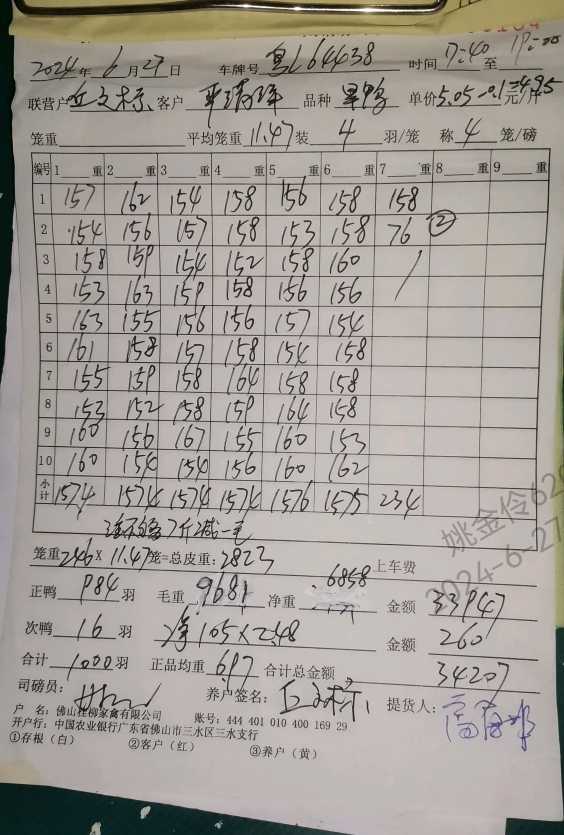 2024年6月27日 车牌号 粤L64438 时间 17:40 至 19:20
联营户 丘文标 客户 品种 单价5.05-0.1=4.95元/斤
笼重 平均笼重11.47装 4 羽/笼 称 4 笼/磅
编号 1 重 2 重 3 重 4 重 5 重 6 重 7 重 8 重 9 重
1 157 162 154 158 156 158 158
2 154 156 157 158 153 158 76 ②
3 158 159 154 152 158 160
4 153 163 159 158 156 156
5 163 155 156 156 157 154
6 161 158 157 158 154 158
7 155 159 158 164 158 158
8 153 152 158 159 164 158
9 160 156 167 155 160 153
10 160 154 154 156 160 162
小计 1574 1574 1574 1574 1576 1575 234
7斤减一毛
笼重246×11.47笼=总皮重:2823 上车费
正鸭 984 羽 毛重 9681 净重 6858 金额 33947
次鸭 16 羽 净105×2.48 金额 260
合计 1000羽 正品均重 6.97 合计总金额 34207
司磅员: 养户签名: 丘文标 提货人:
户 名:佛山桂柳家禽有限公司 账号:444 401 010 400 169 29
开户行:中国农业银行广东省佛山市三水区三水支行
①存根(白) ②客户(红) ③养户(黄)
姚金伶620
2024-6-27